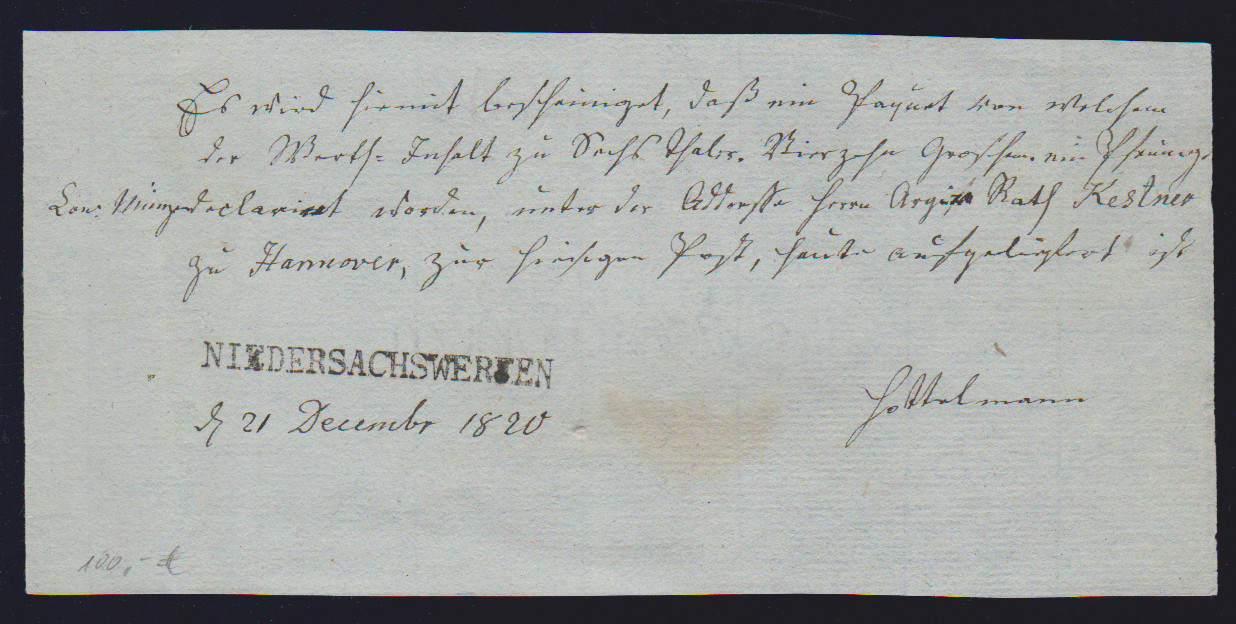 Es wird hiemit bescheiniget, daß ein Paquet von welchem
der Werth=Inhalt zu Sechs Thaler. Vierzehn Groschen ein Pfennig
Conv. Münze declariret worden, unter der Addresse Herrn Rath Kestner
zu Hannover, zur hiesigen Post, heute aufgeliefert ist
NIEDERSACHSWERFEN
d 21 Decembr 1820
Hottelmann
100,-